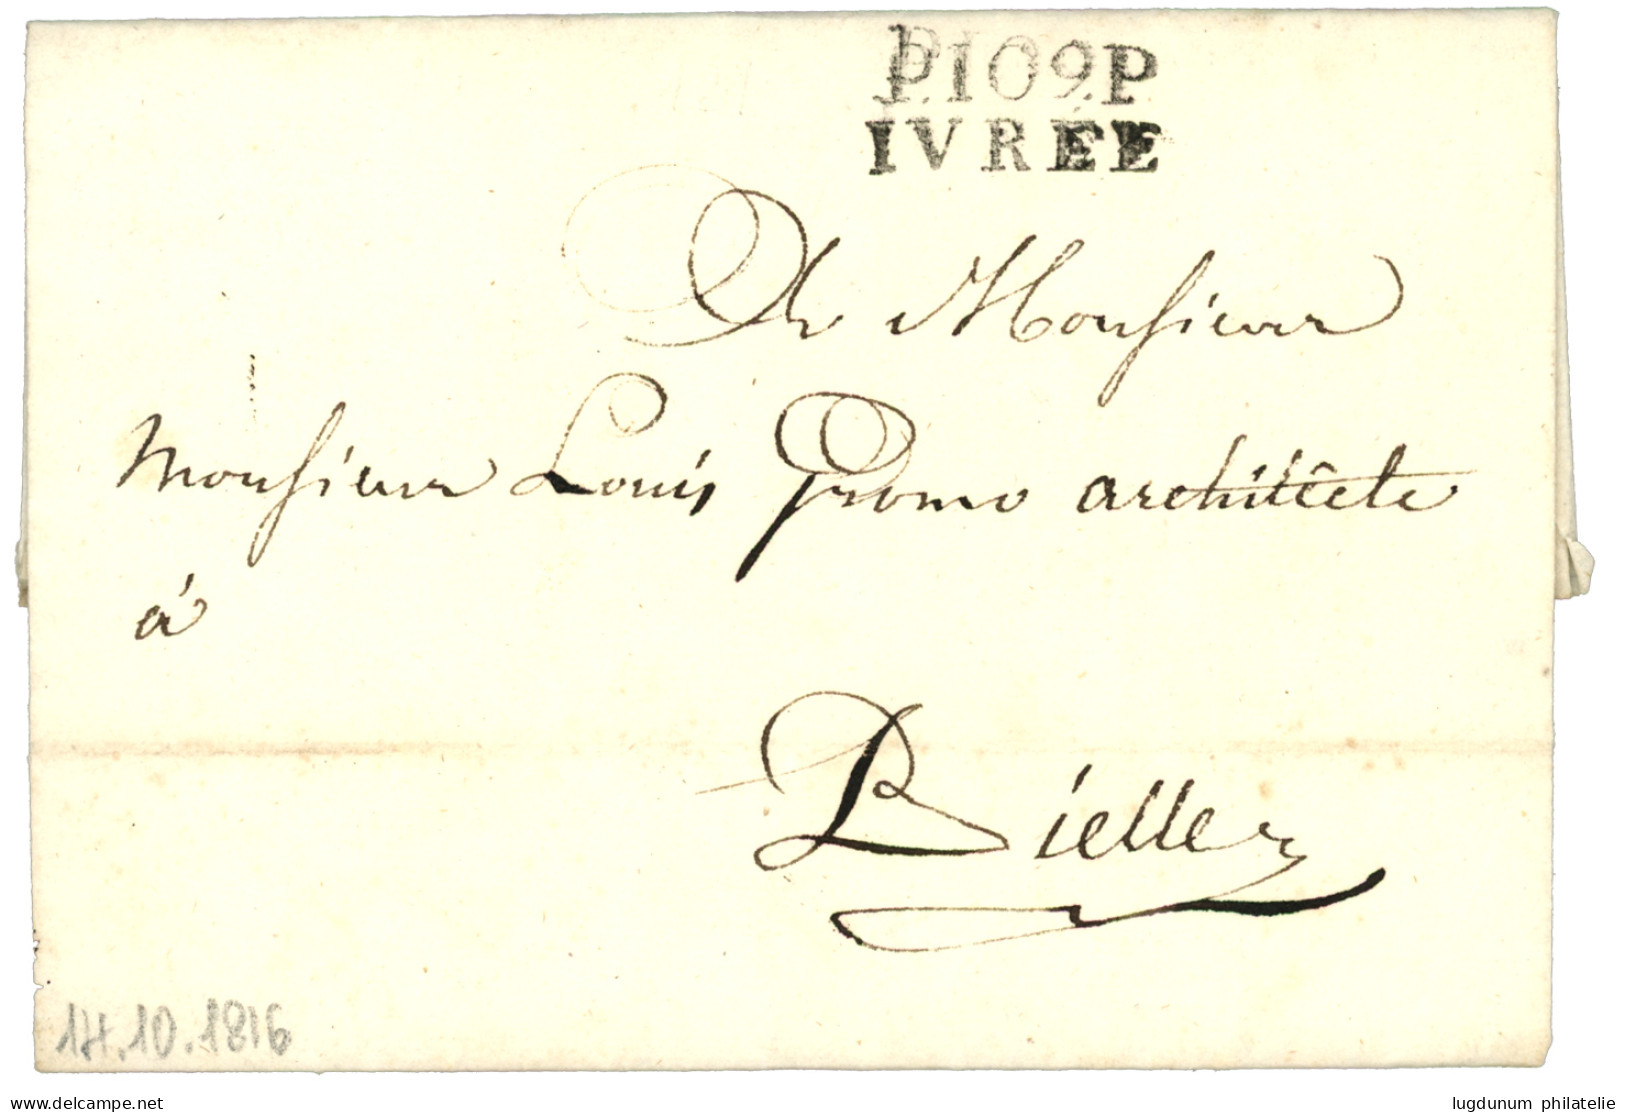 P.109.P
IVRÉE
A Monsieur
Monsieur Louis Promo architècte
à
Bielle
14.10.1816
www.delcampe.net
lugdunum philatelie